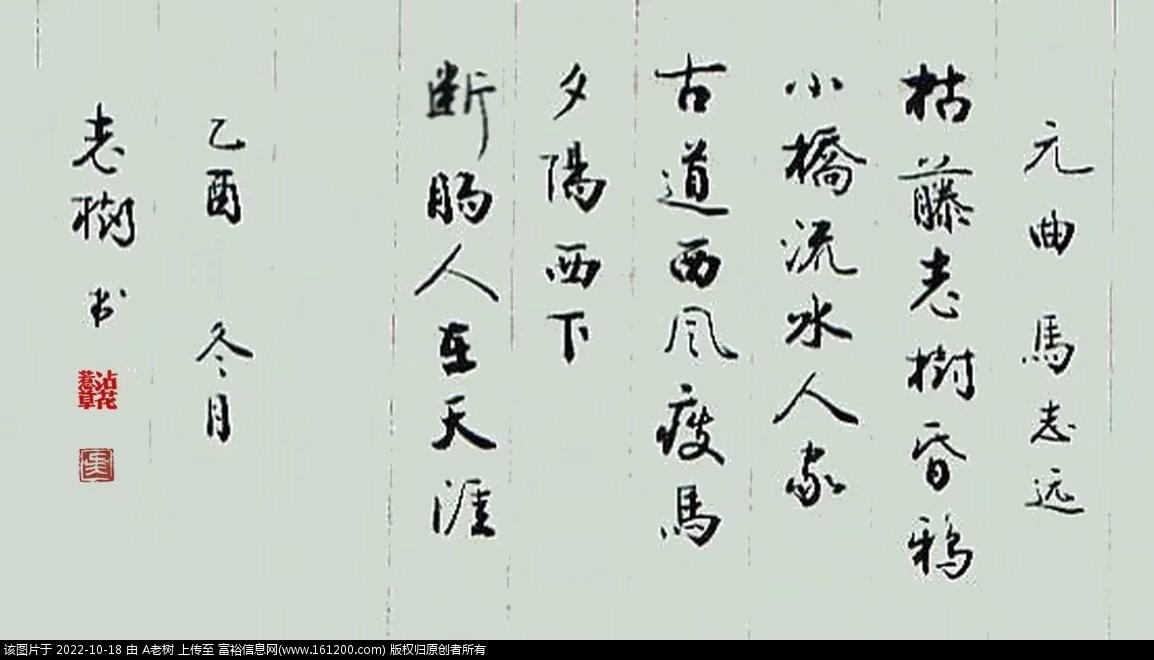 元曲 馬志远
枯藤老樹昏鸦
小橋流水人家
古道西风瘦馬
夕陽西下
断肠人在天涯
乙酉 冬月
老樹书
沾花惹草
该图片于 2022-10-18 由 A老树 上传至 富裕信息网(www.161200.com) 版权归原创者所有